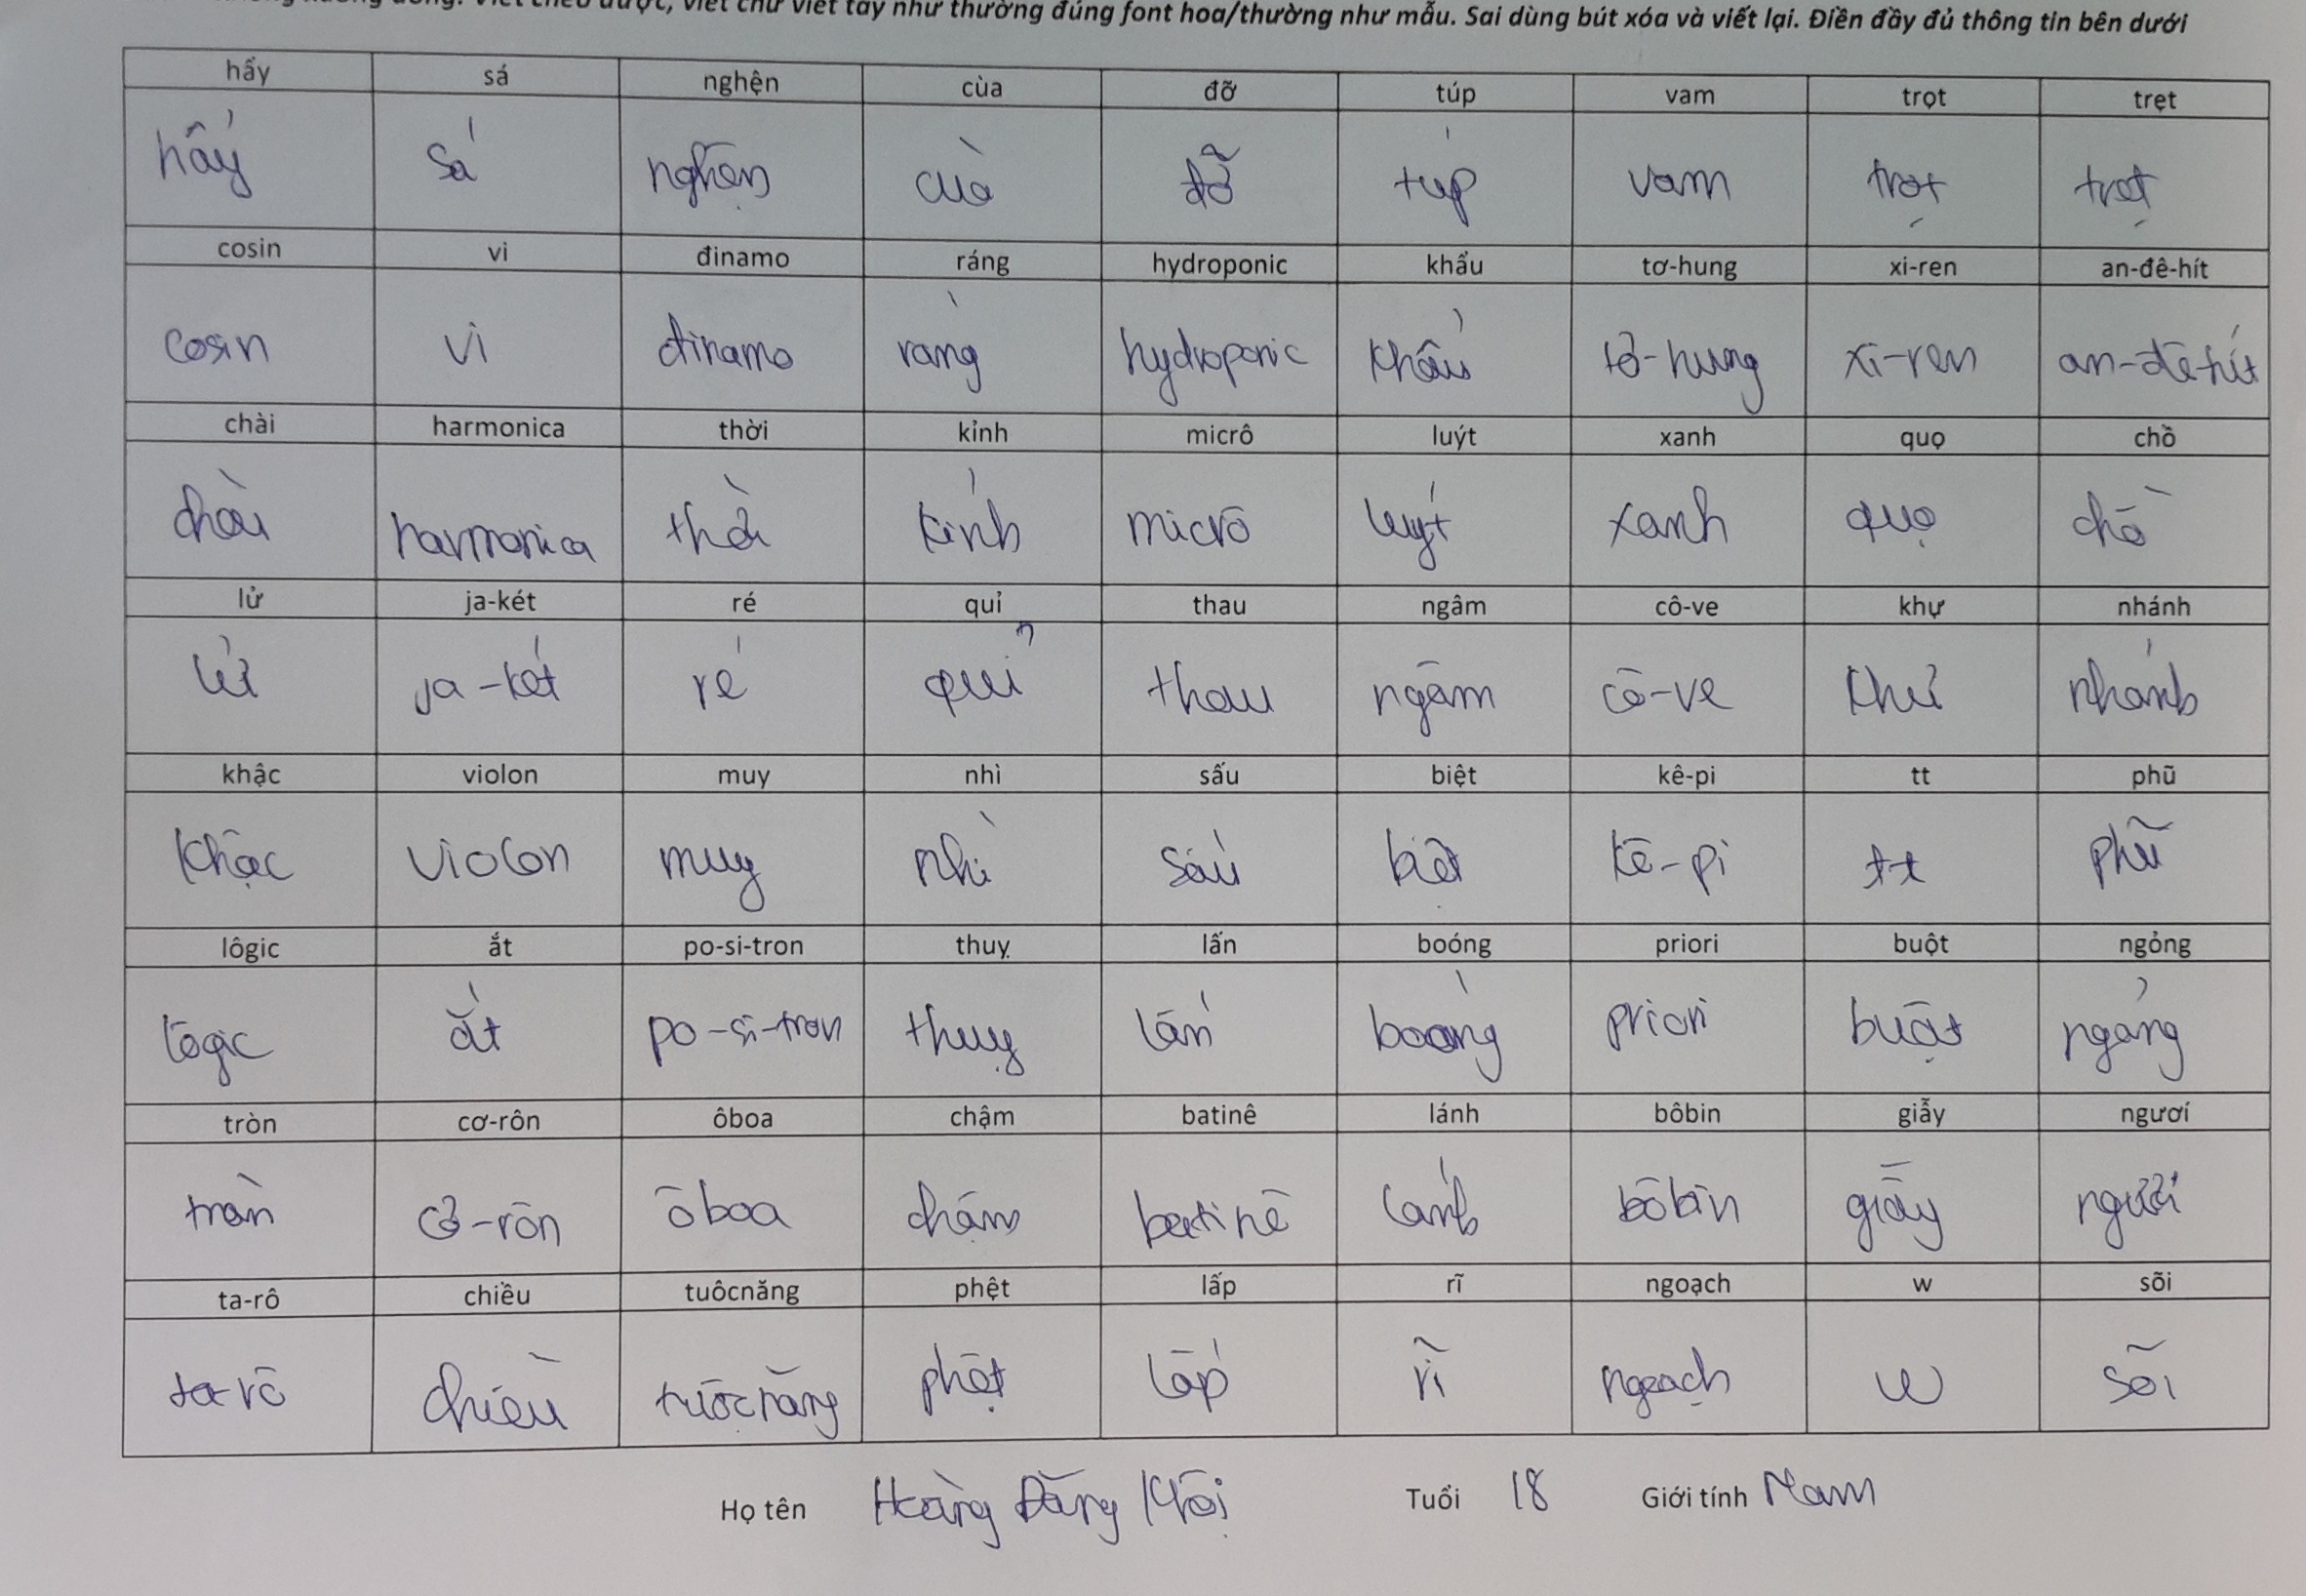 viết chữ viết tay như thường đúng font hoa/thường như mẫu. Sai dùng bút xóa và viết lại. Điền đầy đủ thông tin bên dưới
hấy sá nghện cùa đỡ túp vam trọt trẹt
hấy sá nghện cùa đỡ túp vam trọt trẹt
cosin vi đinamo ráng hydroponic khẩu tơ-hung xi-ren an-đê-hít
cosin vi đinamo ràng hydroponic khẩu tơ-hung xi-ren an-đê-hít
chài harmonica thời kỉnh micrô luýt xanh quọ chồ
chài harmonica thời kỉnh micrô luýt xanh quọ chồ
lử ja-két ré quỉ thau ngâm cô-ve khự nhánh
lử ja-két ré quỉ thau ngâm cô-ve khư nhánh
khậc violon muy nhì sấu biệt kê-pi tt phũ
khậc violon muy nhì sấu biệt kê-pi tt phũ
lôgic ắt po-si-tron thuỵ lấn boóng priori buột ngỏng
lôgic ắt po-si-tron thuỵ lấn boóng priori buột ngỏng
tròn cơ-rôn ôboa chậm batinê lánh bôbin giẫy ngươí
tròn cơ-rôn ôboa châm batinê lánh bôbin giẫy ngươí
ta-rô chiều tuôcnăng phệt lấp rĩ ngoạch w sõi
ta-rô chiều tuôcnăng phệt lấp rĩ ngoạch w sõi
Họ tên Hoàng Đăng Khôi Tuổi 18 Giới tính Nam